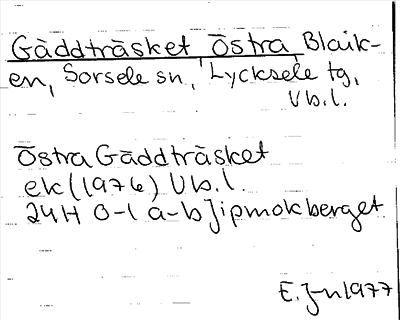 Gäddträsket, Östra, Blaik-
en, Sorsele sn, Lycksele tg,
Vb.l.
Östra Gäddträsket
ek (1976) Vb.l.
24H 0-1 a-b Jipmokberget
E. J-n 1977